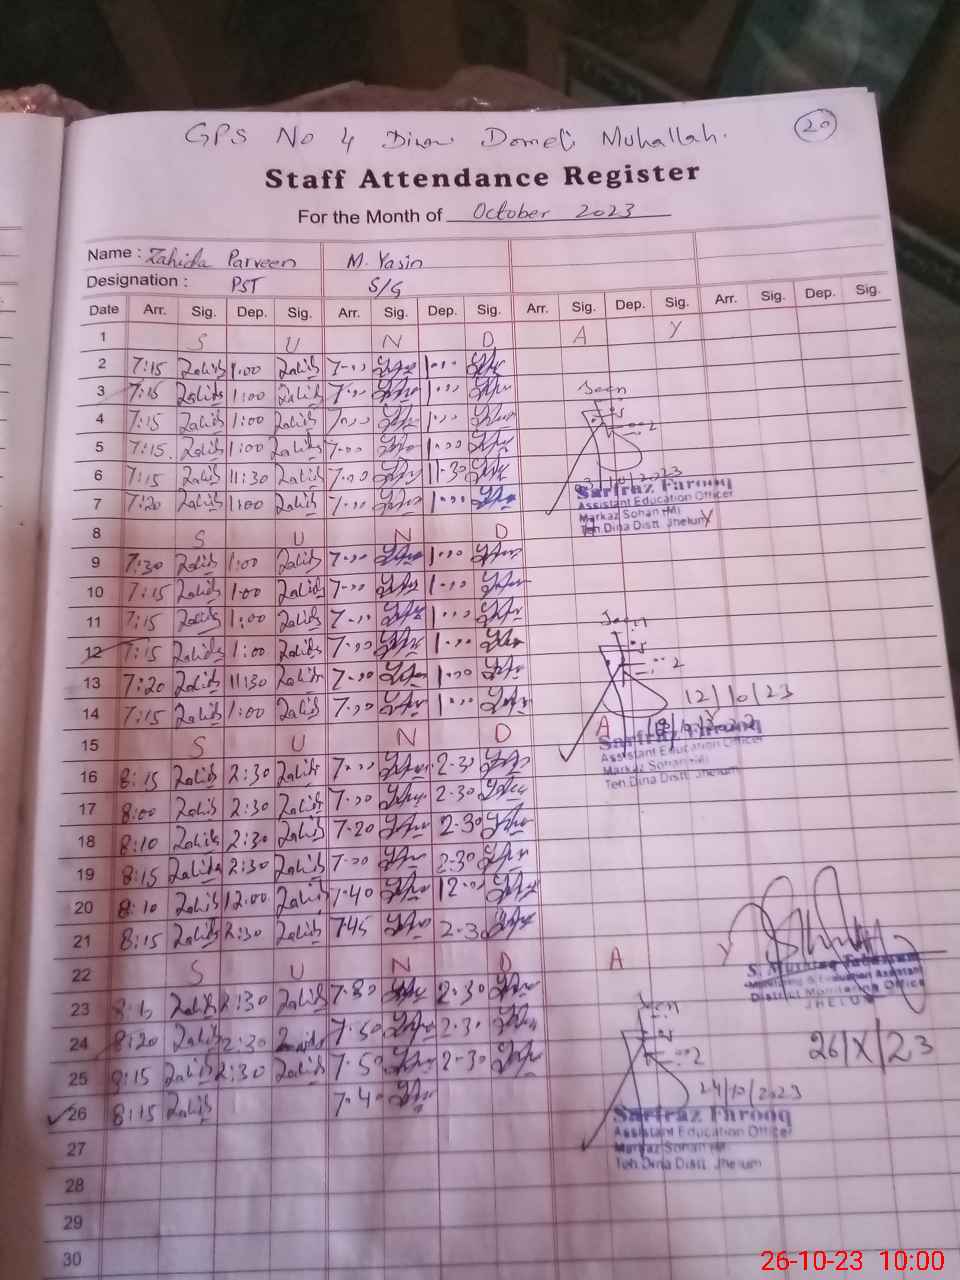 GPS No 4 Dina Domeli Muhallah.
20
Staff Attendance Register
For the Month of October 2023
Name : Zahida Parveen M. Yasin
Designation : PST S/G
Date Arr. Sig. Dep. Sig. Arr. Sig. Dep. Sig. Arr. Sig. Dep. Sig. Arr. Sig. Dep. Sig.
1 S U N D A Y
2 7:15 Zahida 1:00 Zahida 7-00 1-00
3 7:15 Zahida 1:00 Zahida 7-00 1-00 Seen
4 7:15 Zahida 1:00 Zahida 7-00 1-00
5 7:15 Zahida 1:00 Zahida 7-00 1-00
6 7:15 Zahida 11:30 Zahida 7-00 11-30
7 7:20 Zahida 1:00 Zahida 7-00 1-00
Sarfraz Farooq
Assistant Education Officer
Markaz Sohan (M)
Teh Dina Distt. Jhelum
8 S U N D Y
9 7:30 Zahida 1:00 Zahida 7-00 1-00
10 7:15 Zahida 1:00 Zahida 7-00 1-00
11 7:15 Zahida 1:00 Zahida 7-00 1-00 Seen
12 7:15 Zahida 1:00 Zahida 7-00 1-00
13 7:20 Zahida 11:30 Zahida 7-00 1-00 12/10/23
14 7:15 Zahida 1:00 Zahida 7-00 1-00
15 S U N D A Y
Sarfraz Farooq
Assistant Education Officer
Markaz Sohan (M)
Teh Dina Distt. Jhelum
16 8:15 Zahida 2:30 Zahida 7-00 2-30
17 8:00 Zahida 2:30 Zahida 7-00 2-30
18 8:10 Zahida 2:30 Zahida 7-20 2-30
19 8:15 Zahida 2:30 Zahida 7-00 2-30
20 8:10 Zahida 12:00 Zahida 7-40 12-00
21 8:15 Zahida 2:30 Zahida 7-45 2-30
22 S U N D A Y
Monitoring & Evaluation Assistant
District Monitoring Office
JHELUM
23 Zahida 2:30 Zahida 7-30 2-30 Seen
24 8:20 Zahida 2:30 Zahida 7-50 2-30 26/X/23
25 8:15 Zahida 2:30 Zahida 7-50 2-30 24/10/2023
26 8:15 Zahida 7-40
Sarfraz Farooq
Assistant Education Officer
Markaz Sohan (M)
Teh Dina Distt. Jhelum
27
28
29
30
26-10-23 10:00